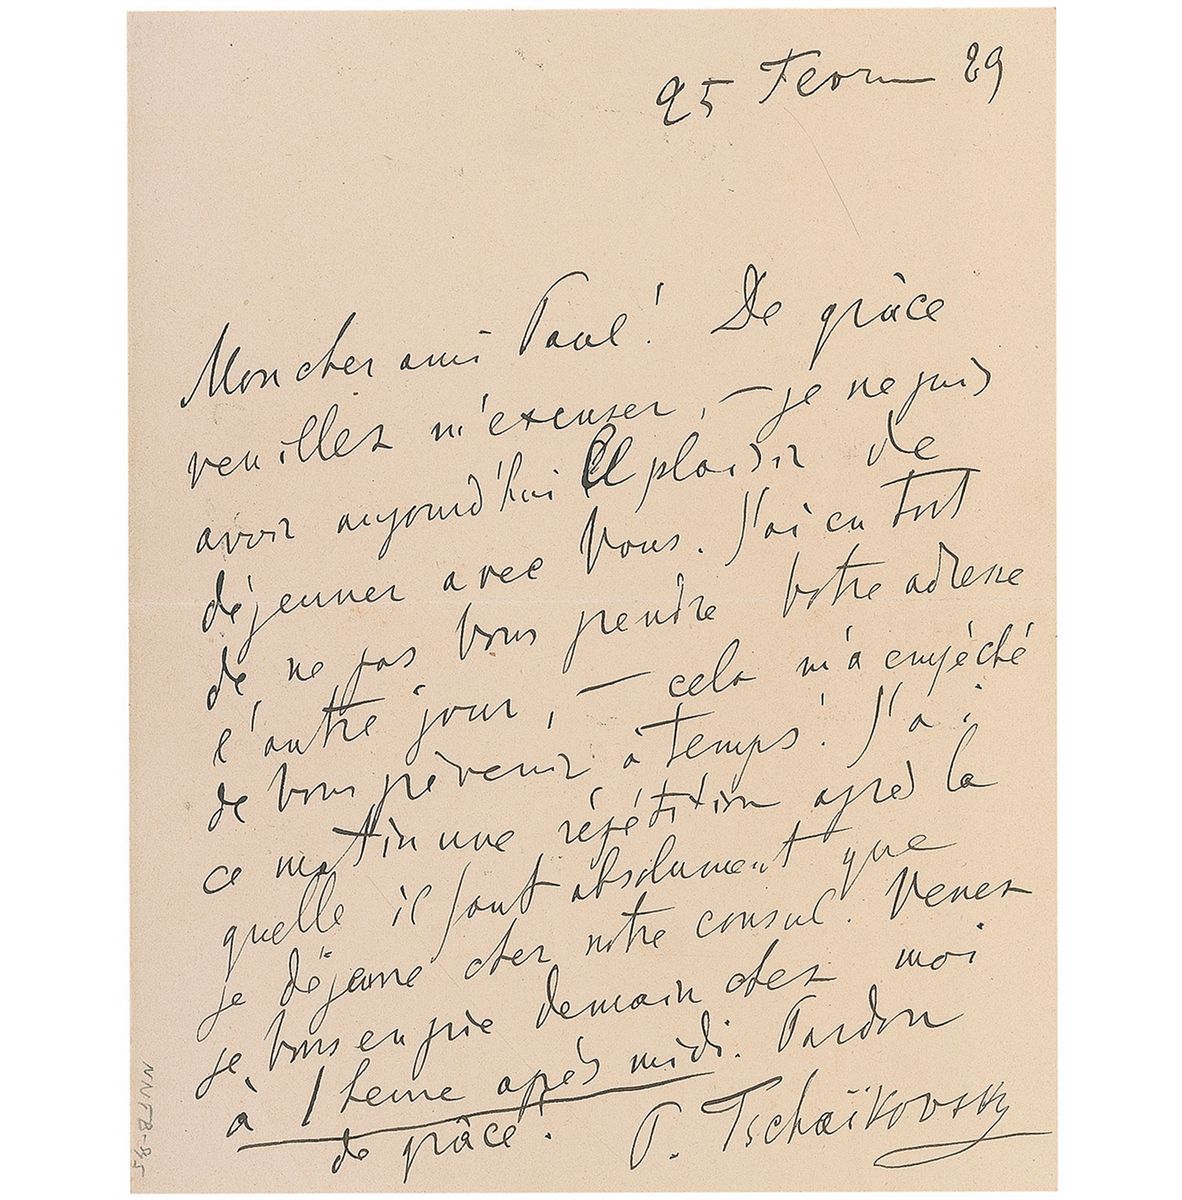 25 Fevr 89
Mon cher ami Paul! De grâce
veuillez m'excuser, — je ne puis
avoir aujourd'hui le plaisir de
déjeuner avec Vous. J'ai eu tort
de ne pas Vous prendre Votre adresse
l'autre jour, — cela m'a empéché
de Vous prévenir à temps! J'ai
ce matin une répétition après la
quelle il faut absolument que
je déjeune chez notre consul. Venez
je Vous en prie demain chez moi
à 1 heure après midi. Pardon
de grâce!
P. Tschaïkovsky